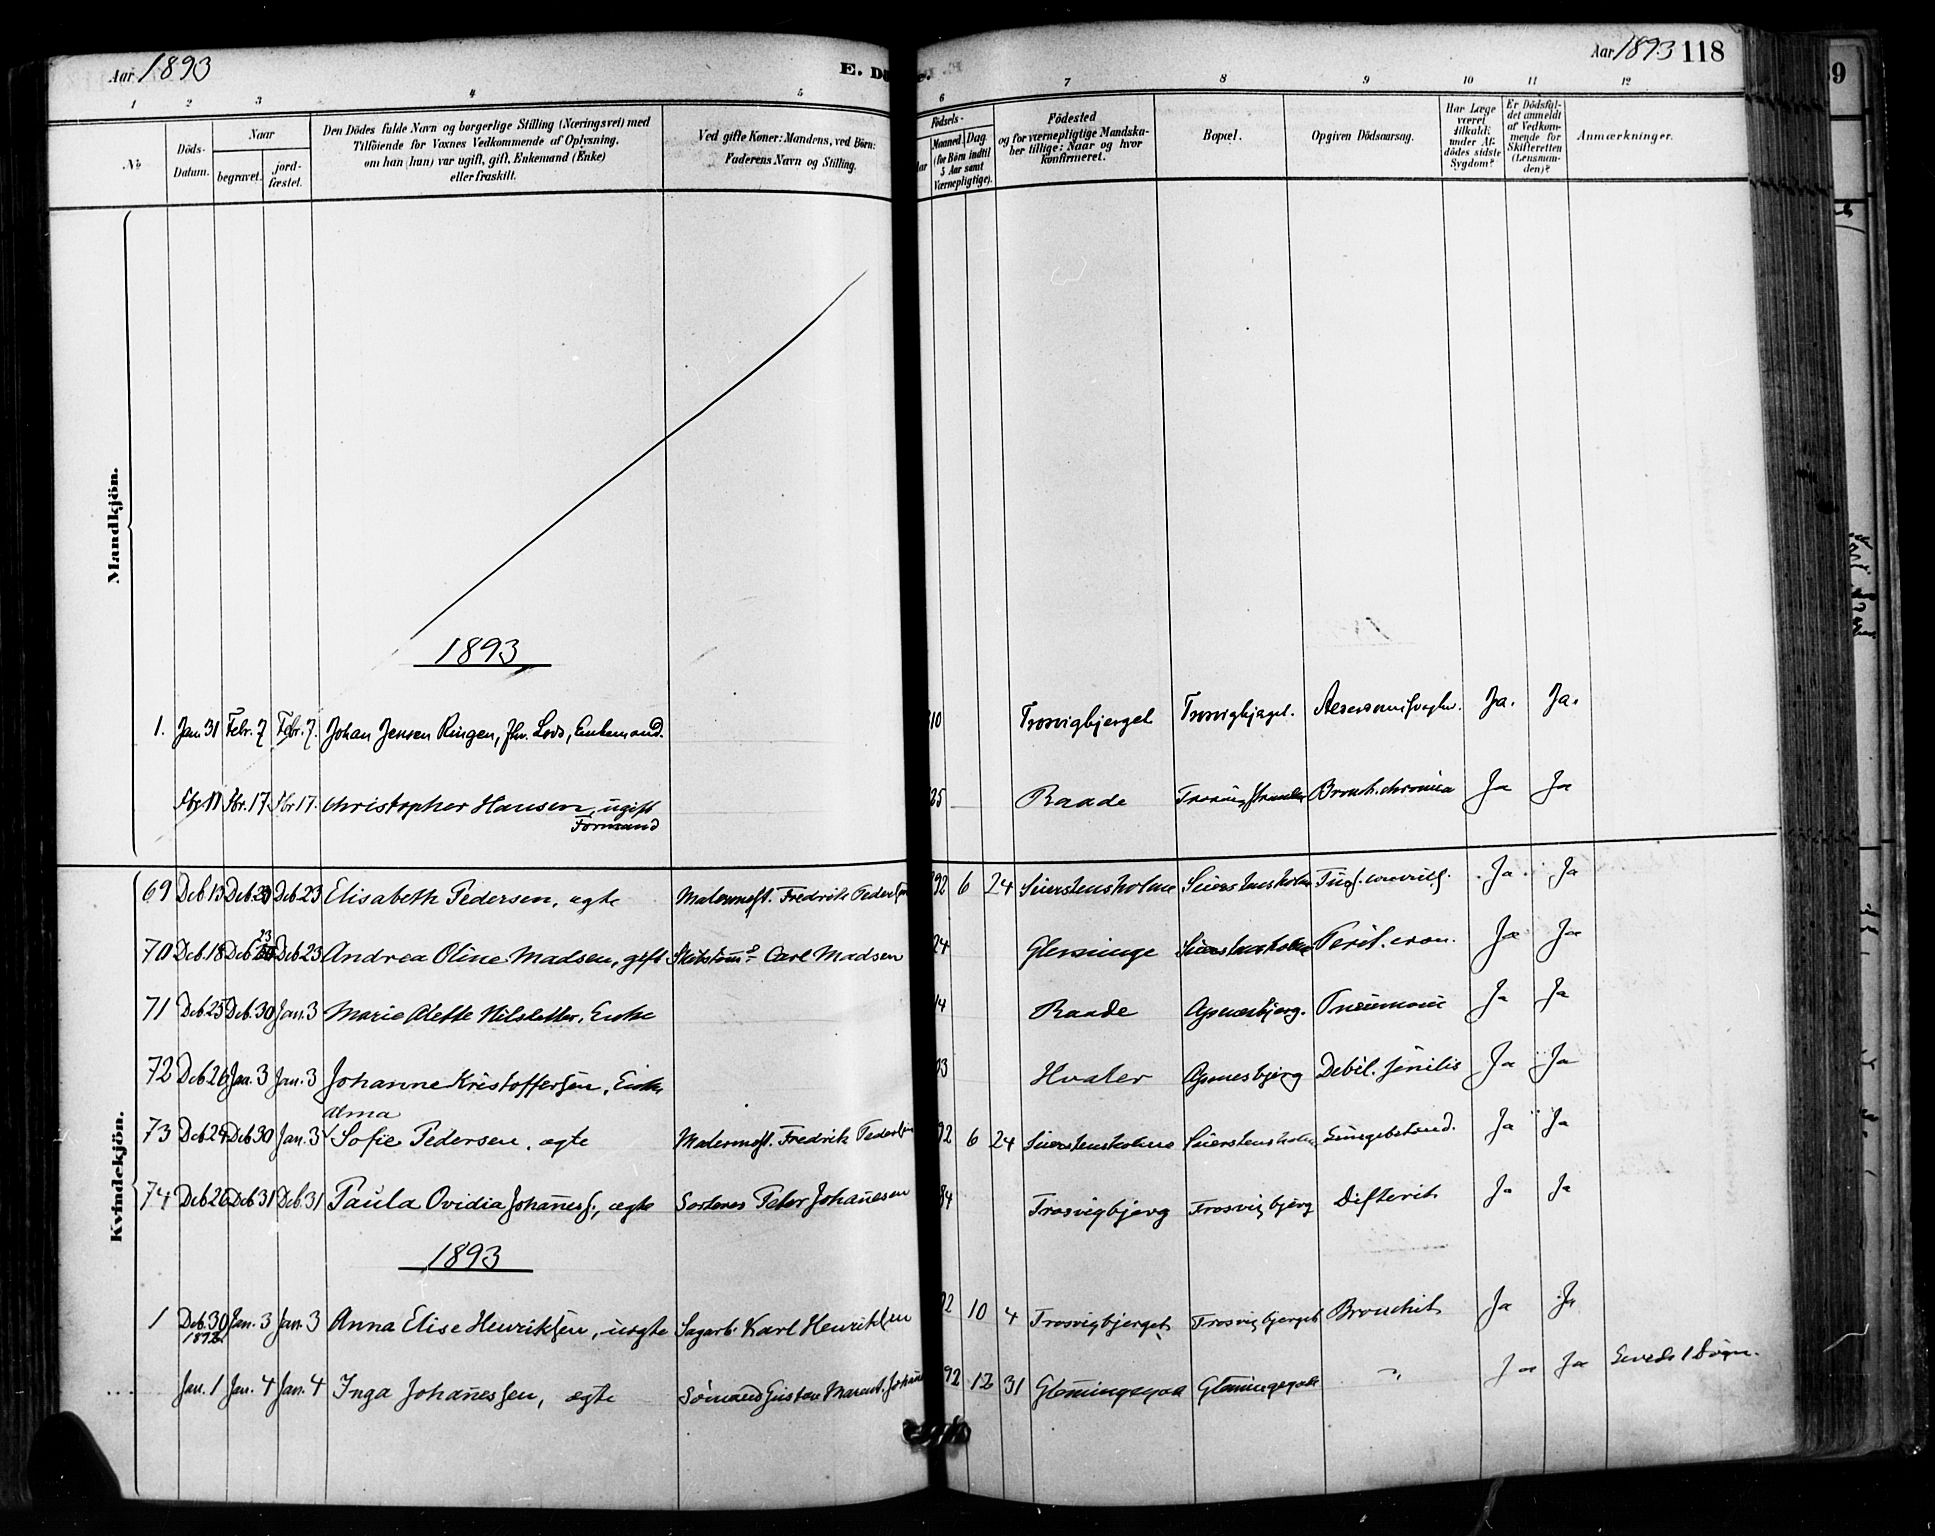 Aar 1893
E. Dö
Aar 1893 118
1 2 3 4 5 6 7 8 9 10 11 12
No
Döds-Datum.
Naar
begravet.
jord-fæstet.
Den Dödes fulde Navn og borgerlige Stilling (Næringsvei) med
Tilföiende for Voxnes Vedkommende af Oplysning,
om han (hun) var ugift, gift, Enkemand (Enke)
eller fraskilt.
Ved gifte Koner: Mandens, ved Börn:
Faderens Navn og Stilling.
Födsels-
Maaned. Dag.
(for Börn indtil
5 Aar samt
Værnepligtige).
Födested
og for værnepligtige Mandska-
ber tillige: Naar og hvor
Konfirmeret.
Bopæl.
Opgiven Dödsaarsag.
Har Læge
været
tilkaldt
under Af-
dödes sidste
Sygdom?
Er Dödsfal-
det anmeldt
af Vedkom-
mende for
Skifteretten
(Lensman-
den)?
Anmærkninger.
Mandkjön.
1893
1. Jan. 31 Febr. 7 Febr. 7. Johan Jensen Ringen, fhv. Lods, Enkemand. 10 Trosvigbjerget Trosvigbjerget. Ja. Ja.
Fbr 11 Fbr. 17 Fbr 17. Christopher Hansen, ugift 25 Raade Bronch. chronica Ja Ja
Formand
Kvindekjön.
69 Dcb 13 Dcb 23 Dcb 23 Elisabeth Pedersen, ægte Fredrik Pedersen 92 6 24 Seierstensholme Seierstensholm Ja Ja
70 Dcb. 18 Dcb 23 Dcb 23 Andrea Oline Madsen, gift Carl Madsen 24 Glemminge Seierstensholm Ja Ja
71 Dcb 25 Dcb. 30 Jan. 3 Marie Alette Nilsdatter, Enke 14 Raade Agnesbjerg. Pneumoni Ja Ja
72 Dcb 26 Jan. 3 Jan. 3 Johanne Kristoffersen, Enke 03 Hvaler Agnesbjerg Debil. senilis Ja Ja
Alma
73 Dcb 24 Dcb 30 Jan. 3 Sofie Pedersen, ægte Fredrik Pedersen 92 6 24 Seierstensholme Seierstensholm Lungebetænd. Ja Ja
74 Dcb 26 Dcb 31 Dcb. 31 Paula Ovidia Johanness., ægte Peter Johanesen 84 Trosvigbjerg Trosvigbjerg Difterit Ja Ja
1893
1 Dcb. 30 Jan. 3 Jan. 3 Anna Elise Henriksen, uægte Sagarb. Karl Henriksen 92 10 4 Trosvigbjerget Trosvigbjerget Bronchit Ja Ja
1892
Jan. 1 Jan. 4 Jan. 4 Inga Johanessen, ægte Sömand Gustav 92 12 31 Glemmingegaa Glemmingegaa " Ja Ja Levede 1 Dögn.